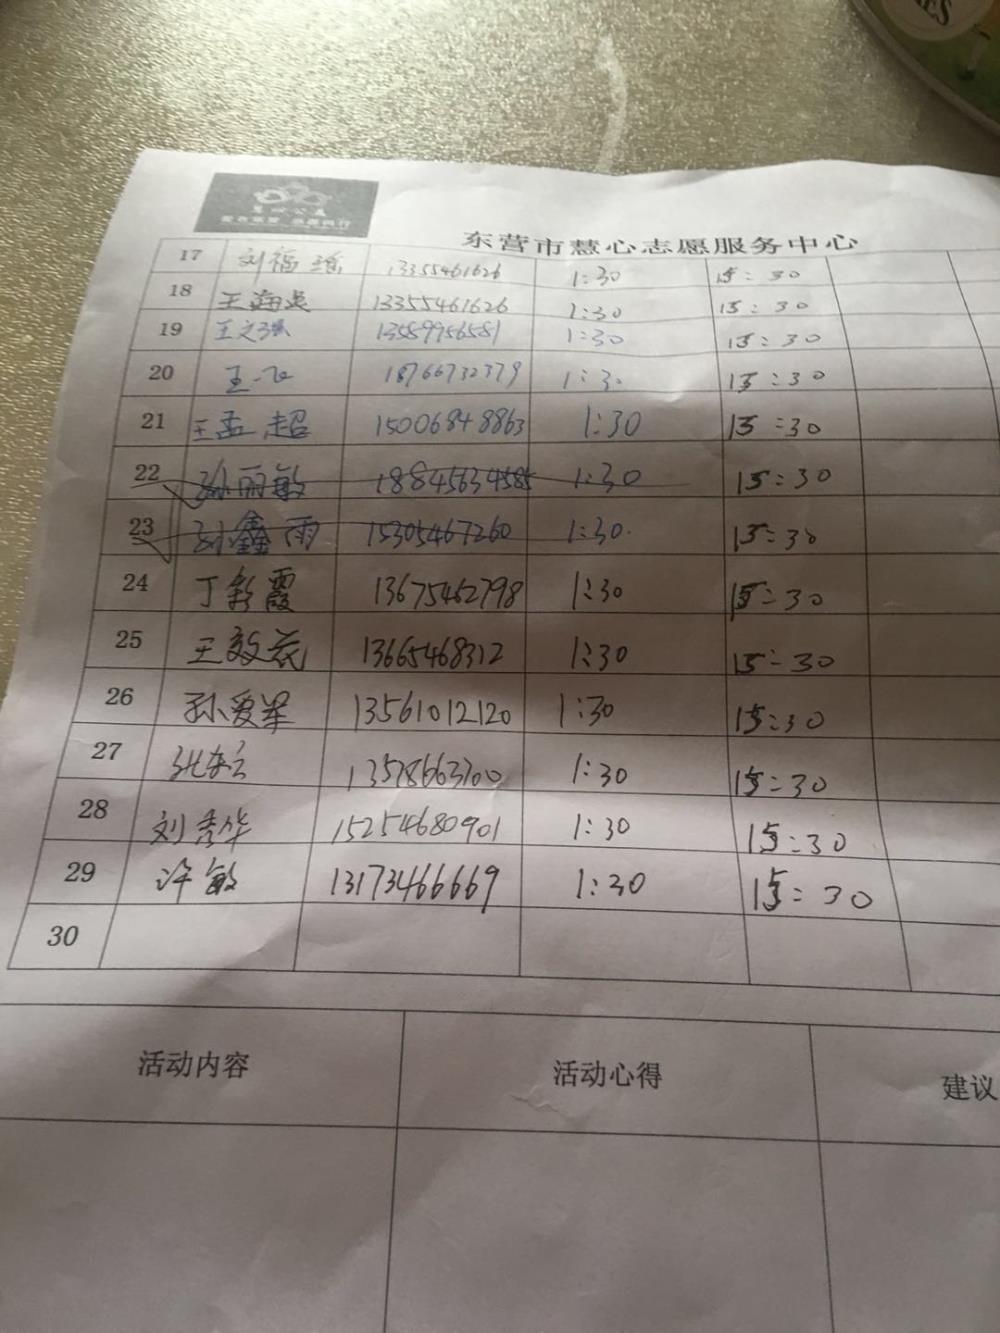 东营市慧心志愿服务中心
17 刘福瑶 13355461626 1:30 15:30
18 王海 13355461626 1:30 15:30
19 王文强 13589956581 1:30 15:30
20 王飞 18766732379 1:30 15:30
21 王孟超 15006848863 1:30 15:30
22 孙丽敏 18845634585 1:30 15:30
23 孙鑫雨 15305467260 1:30 15:30
24 丁新霞 13675462798 1:30 15:30
25 王效 13665468312 1:30 15:30
26 孙爱军 13561012120 1:30 15:30
27 张 1:30 15:30
28 刘秀华 15254680901 1:30 15:30
29 许敏 13173466669 1:30 15:30
30
活动内容 活动心得 建议